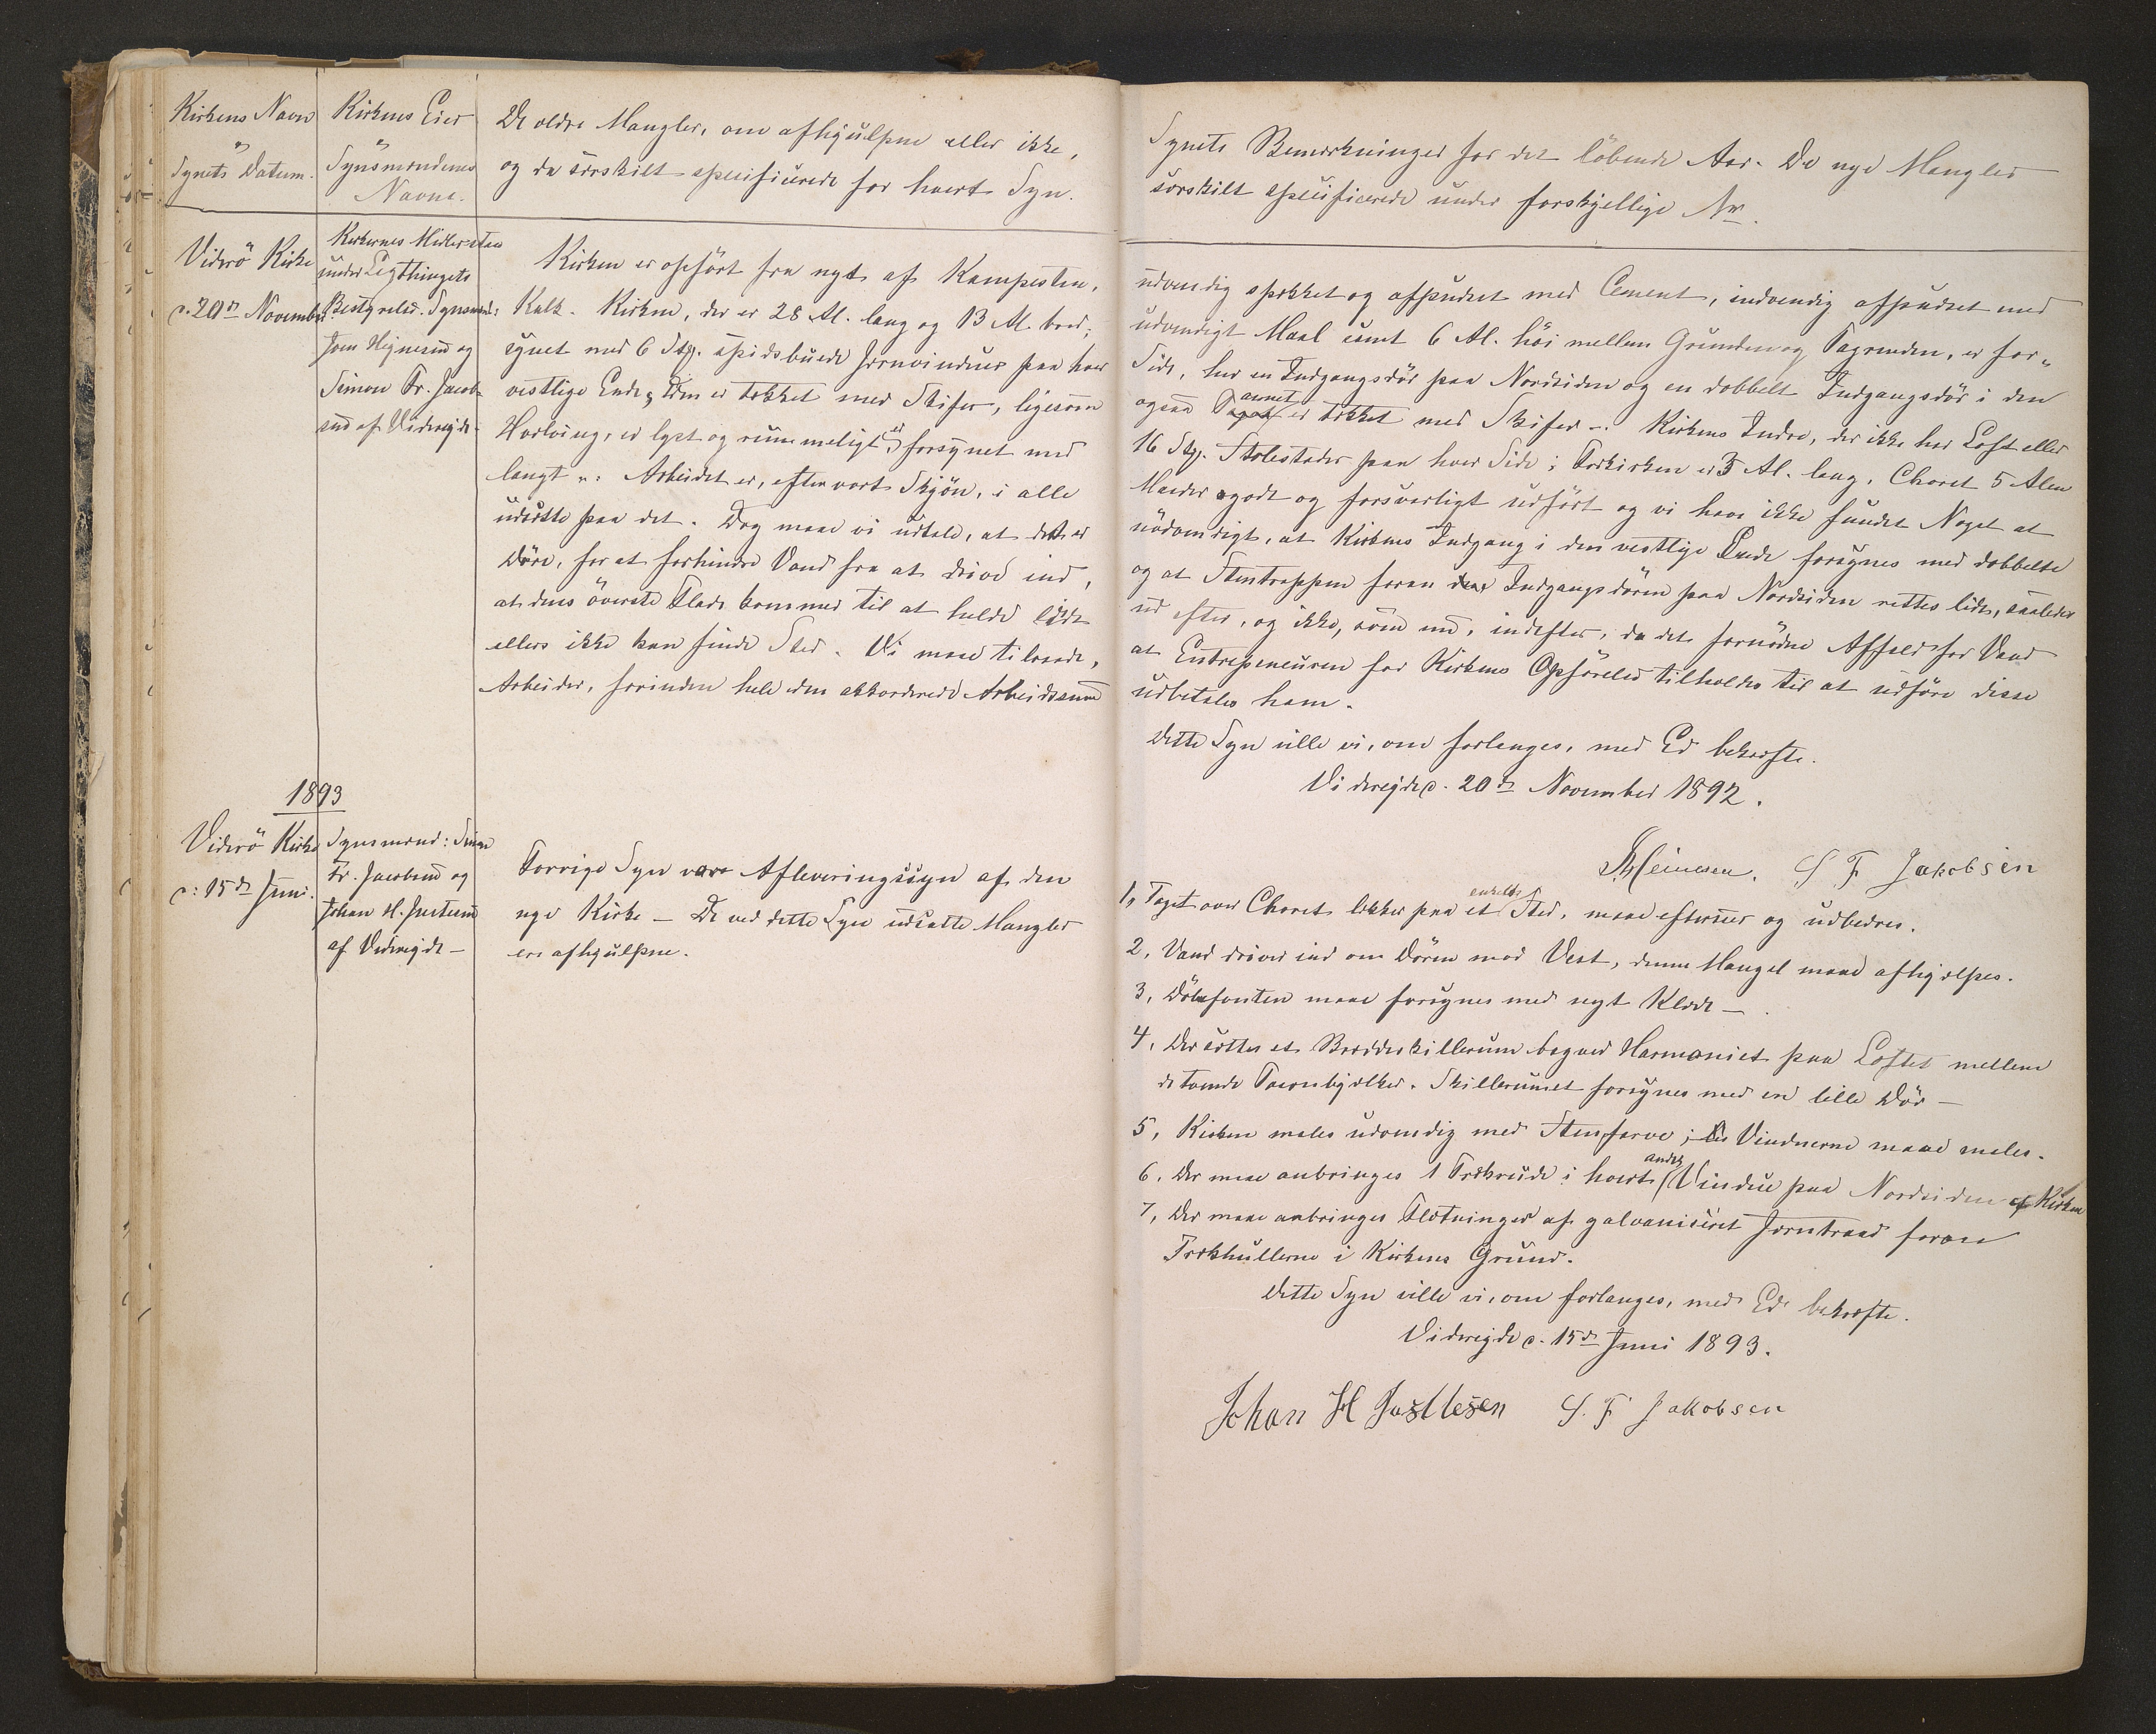 Kirkens Navn
og
Synets Datum.
Kirkens Eier
og
Synsmændenes
Navne.
De ældre Mangler, om afhjulpne eller ikke,
og da særskilt specificerede for hvert Syn.
Synets Bemærkninger for det löbende Aar. De nye Mangler
særskilt specificerede under forskjellige Nr.
Viderö Kirke
d. 20de November
Kirkernes Midler
under Lagthingets
Bestyrelse. Synsmænd:
Joen Hejnesen og
Simon Fr. Jacob-
sen af Viderejde
Kirken er opfört fra nyt af Kampesten,
Kalk. Kirken, der er 28 Al. lang og 13 Al. bred,
synet med 6 Stk. spidsbuede Jernvinduer paa hver
vestlige Ende, som er tækket med Skifer, ligesom
Hvælving, er lyst og rummeligt, er forsynet med
langt. Arbeidet er, efter vort Skjön, i alle
udsætte paa det. Dog maae vi udtale, at det er
Döre, for at forhindre Vand fra at drive ind,
at dens överste Flade kommer til at helde lidt
ellers ikke kan finde Sted. Vi maae tilraade,
Arbeider, forinden hele den akkorderede Arbeidssum
udvendig spækket og afpudset med Cement, indvendig afpudset med
udvendigt Maal samt 6 Al. höi mellem Grunden og Tagrenden, er for-
Side, har en Indgangsdör paa Nordsiden og en dobbelt Indgangsdör i den
ogsaa Taarnet er tækket med Skifer. Kirkens Indre, der ikke har Loft eller
16 Stk. Stolestader paa hver Side; Forkirken er 3 Al. lang, Choret 5 Alen
Maader godt og forsvarligt udfört og vi have ikke fundet Noget at
nödvendigt, at Kirkens Indgang i den vestlige Ende forsynes med dobbelte
og at Stentrappen foran den Indgangsdören paa Nordsiden rettes lidt, saaledes
ud efter, og ikke, som nu, indefter, da det fornödne Affald for Vand
at Entrepeneuren for Kirkens Opförelse tilholdes til at udföre disse
udbetales ham.
Dette Syn ville vi, om forlanges, med Ed bekræfte.
Viderejde d. 20de November 1892.
Heinesen. S F Jakobsen
1893
Viderö Kirke
d: 15de Juni.
Synsmænd: Simon
Fr. Jacobsen og
Johan H. Justesen
af Viderejde
Forrige Syn var Afleveringssyn af den
nye Kirke – De ved dette Syn udsatte Mangler
ere afhjulpne.
1, Taget over Choret lækker paa et enkelt Sted, maae efterses og udbedres.
2, Vand driver ind om Dören mod Vest, denne Mangel maae afhjælpes.
3, Döbefonten maae forsynes med nyt Klæde –
4, Der sættes et Bræddeskillerum bagved Harmoniet paa Loftet mellem
de tvende Taarnbjælker. Skillerumet forsynes med en lille Dör –
5, Kirken males udvendig med Stenfarve; Vinduerne maae males.
6, Der maae anbringes 1 Trækrude i hvert andet Vindue paa Nordsiden af Kirken
7, Der maae anbringes Fletninger af galvaniseret Jerntraad foran
Trækhullerne i Kirkens Grund.
Dette Syn ville vi, om forlanges, med Ed bekræfte.
Viderejde d. 15de Juni 1893.
Johan H Justesen S. F Jakobsen